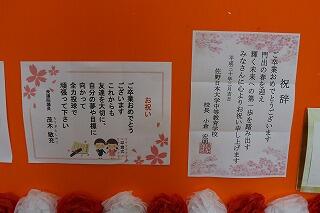 祝辞
ご卒業おめでとうございます
門出の春を迎え
輝く未来への第一歩を踏み出す
みなさんに心よりお祝い申し上げます
平成二十年三月吉日
佐野日本大学中等教育学校
校長 小倉
お祝い
ご卒業おめでとう
ございます
これからも
友達を大切に、
自分の夢や目標に
向かって
全力投球で
頑張って下さい
衆議院議員
茂木敏充